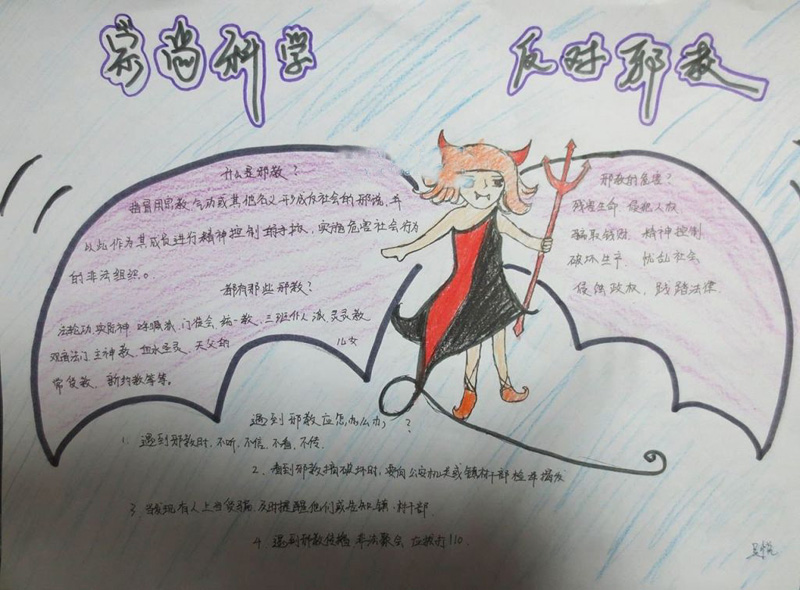 崇尚科学
反对邪教
什么是邪教？
指冒用宗教、气功或其他名义形成反社会的邪说，并
以此作为其成员进行精神控制的手段，实施危害社会行为
的非法组织。
都有那些邪教？
法轮功、实际神、呼喊派、门徒会、统一教、三班仆人派、灵灵教、
观音法门、主神教、天父的儿女
常受教、新约教等等。
邪教的危害？
残害生命、侵犯人权
骗取钱财、精神控制
破坏生产、扰乱社会
侵蚀政权、践踏法律
遇到邪教应怎么办？
1. 遇到邪教时，不听、不信、不看、不传
2. 看到邪教搞破坏时，要向公安机关或镇村干部检举揭发
3. 发现有人上当受骗，及时提醒他们或告知镇、村干部
4. 遇到邪教传播、非法聚会，应拨打110.